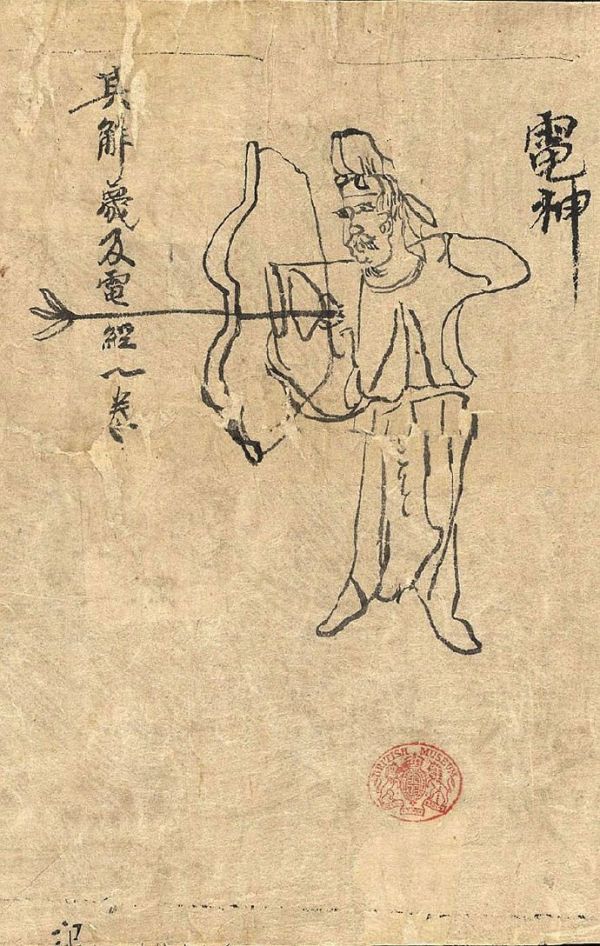 電神
其解夢及電經一卷
BRITISH MUSEUM